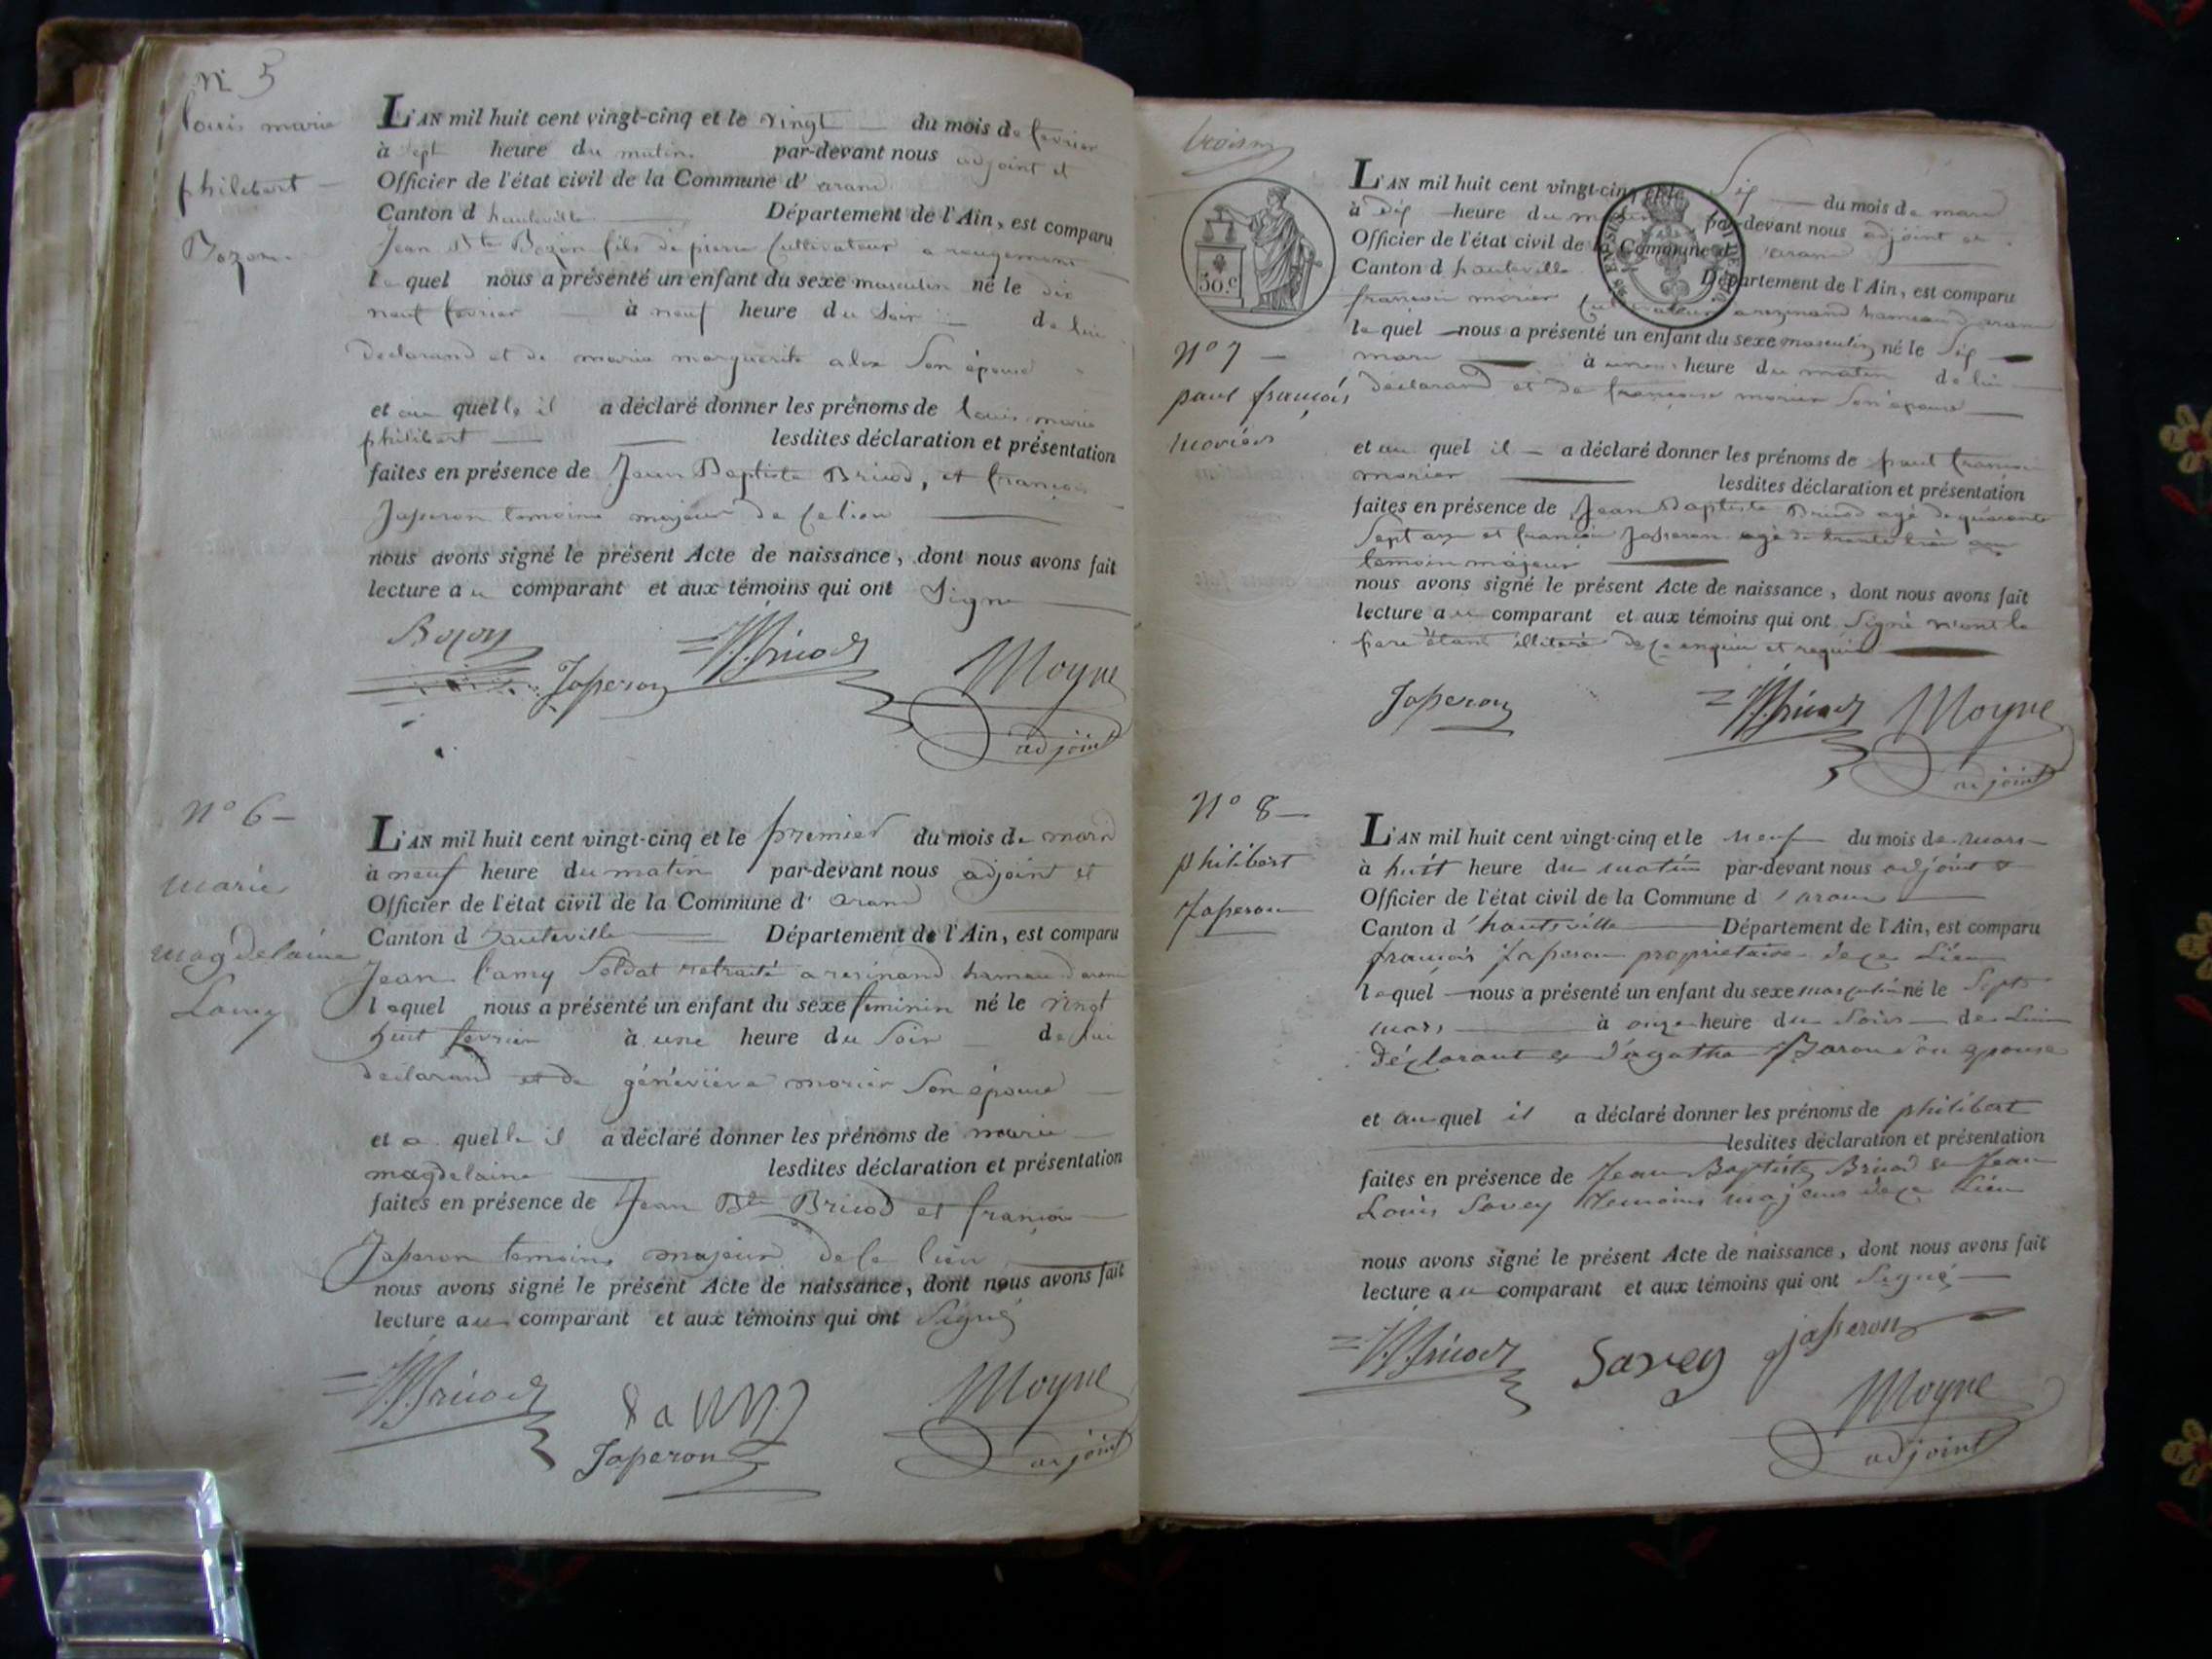 N° 5
louis marie
philibert
Bozon
L'AN mil huit cent vingt-cinq et le vingt du mois de fevrier
à sept heure du matin par-devant nous adjoint et
Officier de l'état civil de la Commune d' aranc
Canton d hauteville Département de l'Ain, est comparu
Jean Bte Bozon fils de pierre Cultivateur a rougemont
lequel nous a présenté un enfant du sexe masculin né le dix
neuf fevrier à neuf heure du Soir de lui
declarand et de marie marguerite alex Son épouse
et au quelle il a déclaré donner les prénoms de louis marie
philibert lesdites déclaration et présentation
faites en présence de Jean Baptiste Bricod, et françois
Jasseron temoins majeur de ce lieu
nous avons signé le présent Acte de naissance, dont nous avons fait
lecture au comparant et aux témoins qui ont Signe
Bozon
Jasseron
Bricod
Moyne
adjoint
N° 6
marie
magdelaine
Lamy
L'AN mil huit cent vingt-cinq et le premier du mois de mars
à neuf heure du matin par-devant nous adjoint et
Officier de l'état civil de la Commune d' aranc
Canton d hauteville Département de l'Ain, est comparu
Jean Lamy Soldat retraité a resinand hameau d'aranc
lequel nous a présenté un enfant du sexe feminin né le vingt
huit fevrier à une heure du Soir de lui
declarand et de géneviève morier Son épouse
et a quelle il a déclaré donner les prénoms de marie
magdelaine lesdites déclaration et présentation
faites en présence de Jean Bte Bricod et françois
Jasseron temoins majeur de ce lieu
nous avons signé le présent Acte de naissance, dont nous avons fait
lecture au comparant et aux témoins qui ont Signé
Bricod
Lamy
Jasseron
Moyne
adjoint
50.c
N° 7
paul françois
moriér
L'AN mil huit cent vingt-cinq et le Sip du mois de mars
à heure du matin par-devant nous adjoint et
Officier de l'état civil de la Commune d' aranc
Canton d hauteville Département de l'Ain, est comparu
françois morier Cultivateur a resinand hameau d'aranc
lequel nous a présenté un enfant du sexe masculin né le Sip
mars à une heure du matin de lui
déclarand et de françoise morier Son épouse
et au quel il a déclaré donner les prénoms de paul françois
morier lesdites déclaration et présentation
faites en présence de Jean Baptiste Bricod agé de quarante
Sept ans et françois Jasseron agé de trente trois ans
temoin majeur
nous avons signé le présent Acte de naissance, dont nous avons fait
lecture au comparant et aux témoins qui ont Signé non le
pere étant illiteré de ce enquis et requis
Jasseron
Bricod
Moyne
adjoint
N° 8
philibert
Jasseron
L'AN mil huit cent vingt-cinq et le neuf du mois de mars
à huit heure du matin par-devant nous adjoint &
Officier de l'état civil de la Commune d' aranc
Canton d' hauteville Département de l'Ain, est comparu
françois jasseron propriétaire de ce Lieu
lequel nous a présenté un enfant du sexe masculin né le Sept
mars à onze heure du Soir de Lui
Déclarant & d'agathe Baron Son epouse
et au quel il a déclaré donner les prénoms de philibert
lesdites déclaration et présentation
faites en présence de Jean Baptiste Bricod & Jean
Louis Savey temoins majeurs de ce Lieu
nous avons signé le présent Acte de naissance, dont nous avons fait
lecture au comparant et aux témoins qui ont Signé
Bricod
Savey
jasseron
Moyne
adjoint